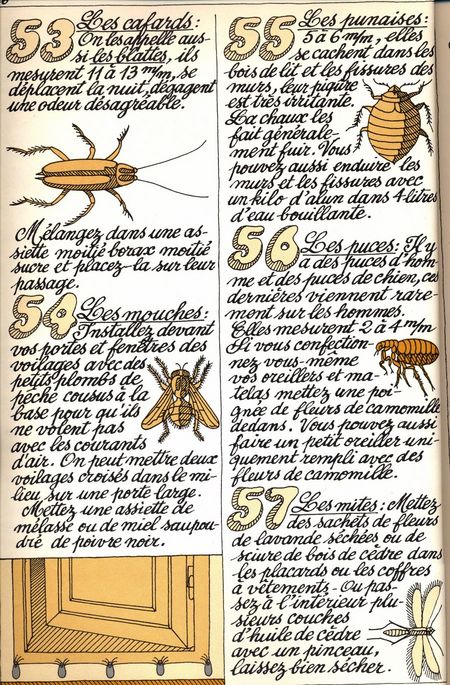 53 Les cafards :
On les appelle aus-
si les blattes, ils
mesurent 11 à 13 m/m, se
déplacent la nuit, dégagent
une odeur désagréable.
Mélangez dans une as-
siette moitié borax moitié
sucre et placez-la sur leur
passage.
54 Les mouches :
Installez devant
vos portes et fenêtres des
voilages avec des
petits plombs de
pêche cousus à la
base pour qu'ils
ne volent pas
avec les courants
d'air. On peut mettre deux
voilages croisés dans le mi-
lieu sur une porte large.
Mettez une assiette de
mélasse ou de miel saupou-
dré de poivre noir.
55 Les punaises :
5 à 6 m/m, elles
se cachent dans les
bois de lit et les fissures des
murs, leur piqûre
est très irritante.
La chaux les
fait générale-
ment fuir. Vous
pouvez aussi enduire les
murs et les fissures avec
un kilo d'alun dans 4 litres
d'eau bouillante.
56 Les puces : Il y
a des puces d'hom-
me et des puces de chien, ces
dernières viennent rare-
ment sur les hommes.
Elles mesurent 2 à 4 m/m
Si vous confection-
nez vous-même
vos oreillers et ma-
telas mettez une poi-
gnée de fleurs de camomille
dedans. Vous pouvez aussi
faire un petit oreiller uni-
quement rempli avec des
fleurs de camomille.
57 Les mites : Mettez
des sachets de fleurs
de lavande séchées ou de
sciure de bois de cèdre dans
les placards ou les coffres
à vêtements - Ou pas-
sez à l'intérieur plu-
sieurs couches
d'huile de cèdre
avec un pinceau,
laissez bien sécher.